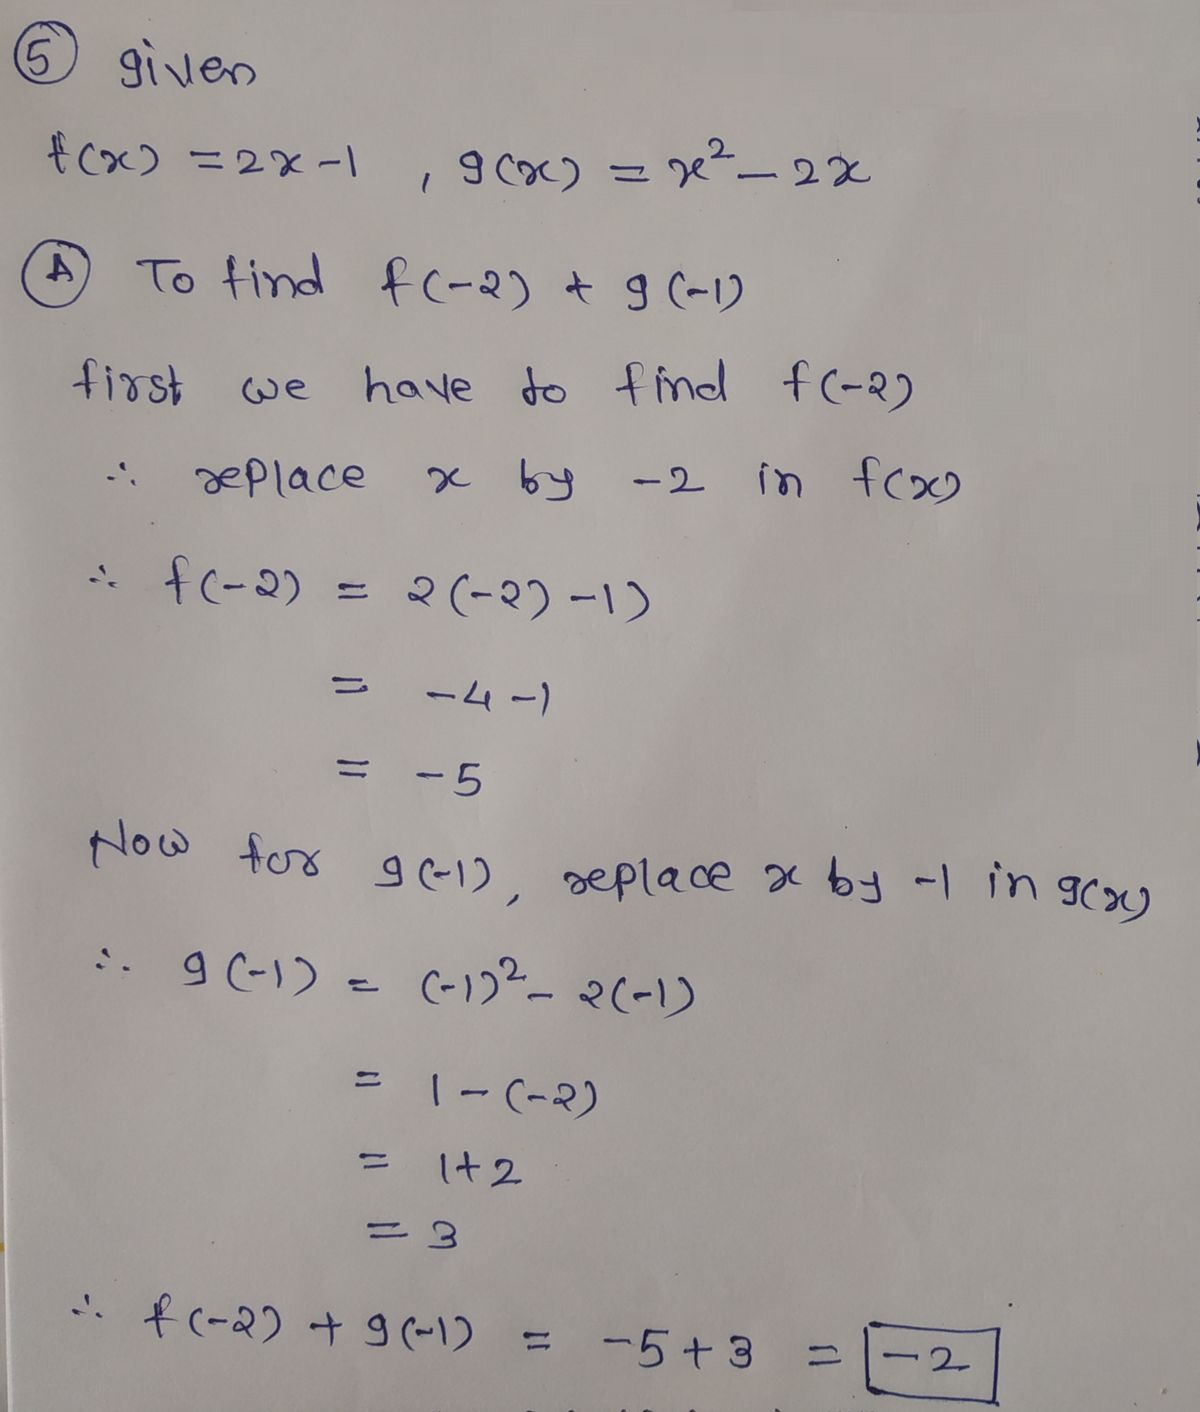 ⑤ given
f(x) = 2x-1 , g(x) = x² - 2x
Ⓐ To find f(-2) + g(-1)
first we have to find f(-2)
∴ replace x by -2 in f(x)
∴ f(-2) = 2(-2) -1)
= -4 -1
= -5
Now for g(-1), replace x by -1 in g(x)
∴ g(-1) = (-1)² - 2(-1)
= 1 - (-2)
= 1+2
= 3
∴ f(-2) + g(-1) = -5+3 = -2